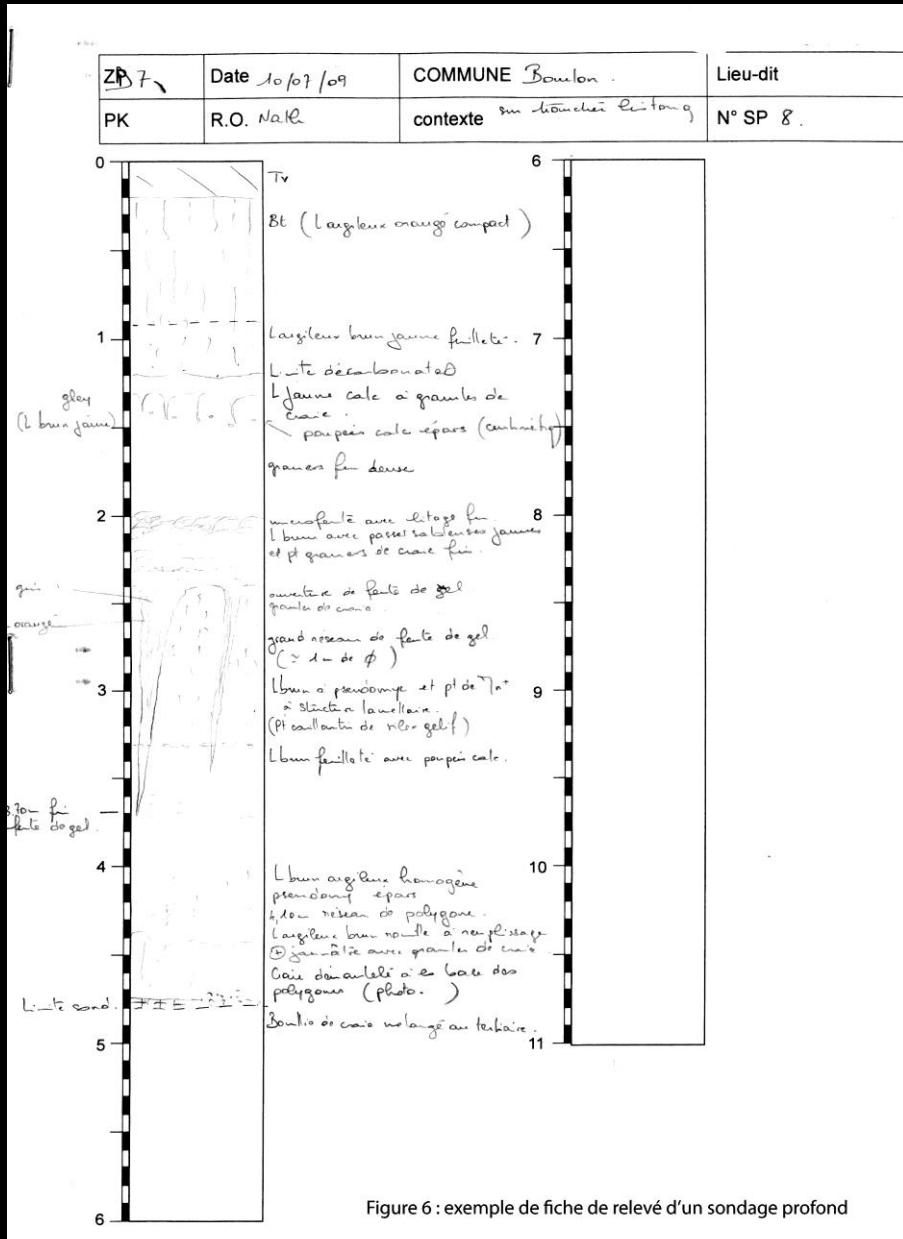 ZP B7
Date 10/07/09
COMMUNE Bourlon.
Lieu-dit
PK
R.O. Nath
contexte sur tranchée
N° SP 8.
0
1
2
3
4
5
6
6
7
8
9
10
11
Tv
Bt (L argileux orangé compact)
L argileux brun jaune feuilleté.
L jaune calc à granules de
craie.
poupées calc épars
gley
(L brun jaune)
graviers fin dense
microfente avec litage fin
L brun avec passes sableuses jaunes
et pt graviers de craie fin.
gris
orangé
ouverture de fente de gel
granules de craie
grand réseau de fente de gel
(≃ 1m de ϕ)
L brun à pseudomyc et pt de Mn+
à structure lamellaire.
(Pt de silex gélif)
L brun feuilleté avec poupées calc.
3.70m fin
fente de gel
L brun argileux homogène
pseudomyc épars
4,10m réseau de polygone.
L argileux brun à remplissage
⊕ jaunâtre avec granules de craie
Craie démantelé à la base des
polygones (photo. )
Limite sond.
Bouillie de craie mélangé au tertiaire.
Figure 6 : exemple de fiche de relevé d'un sondage profond